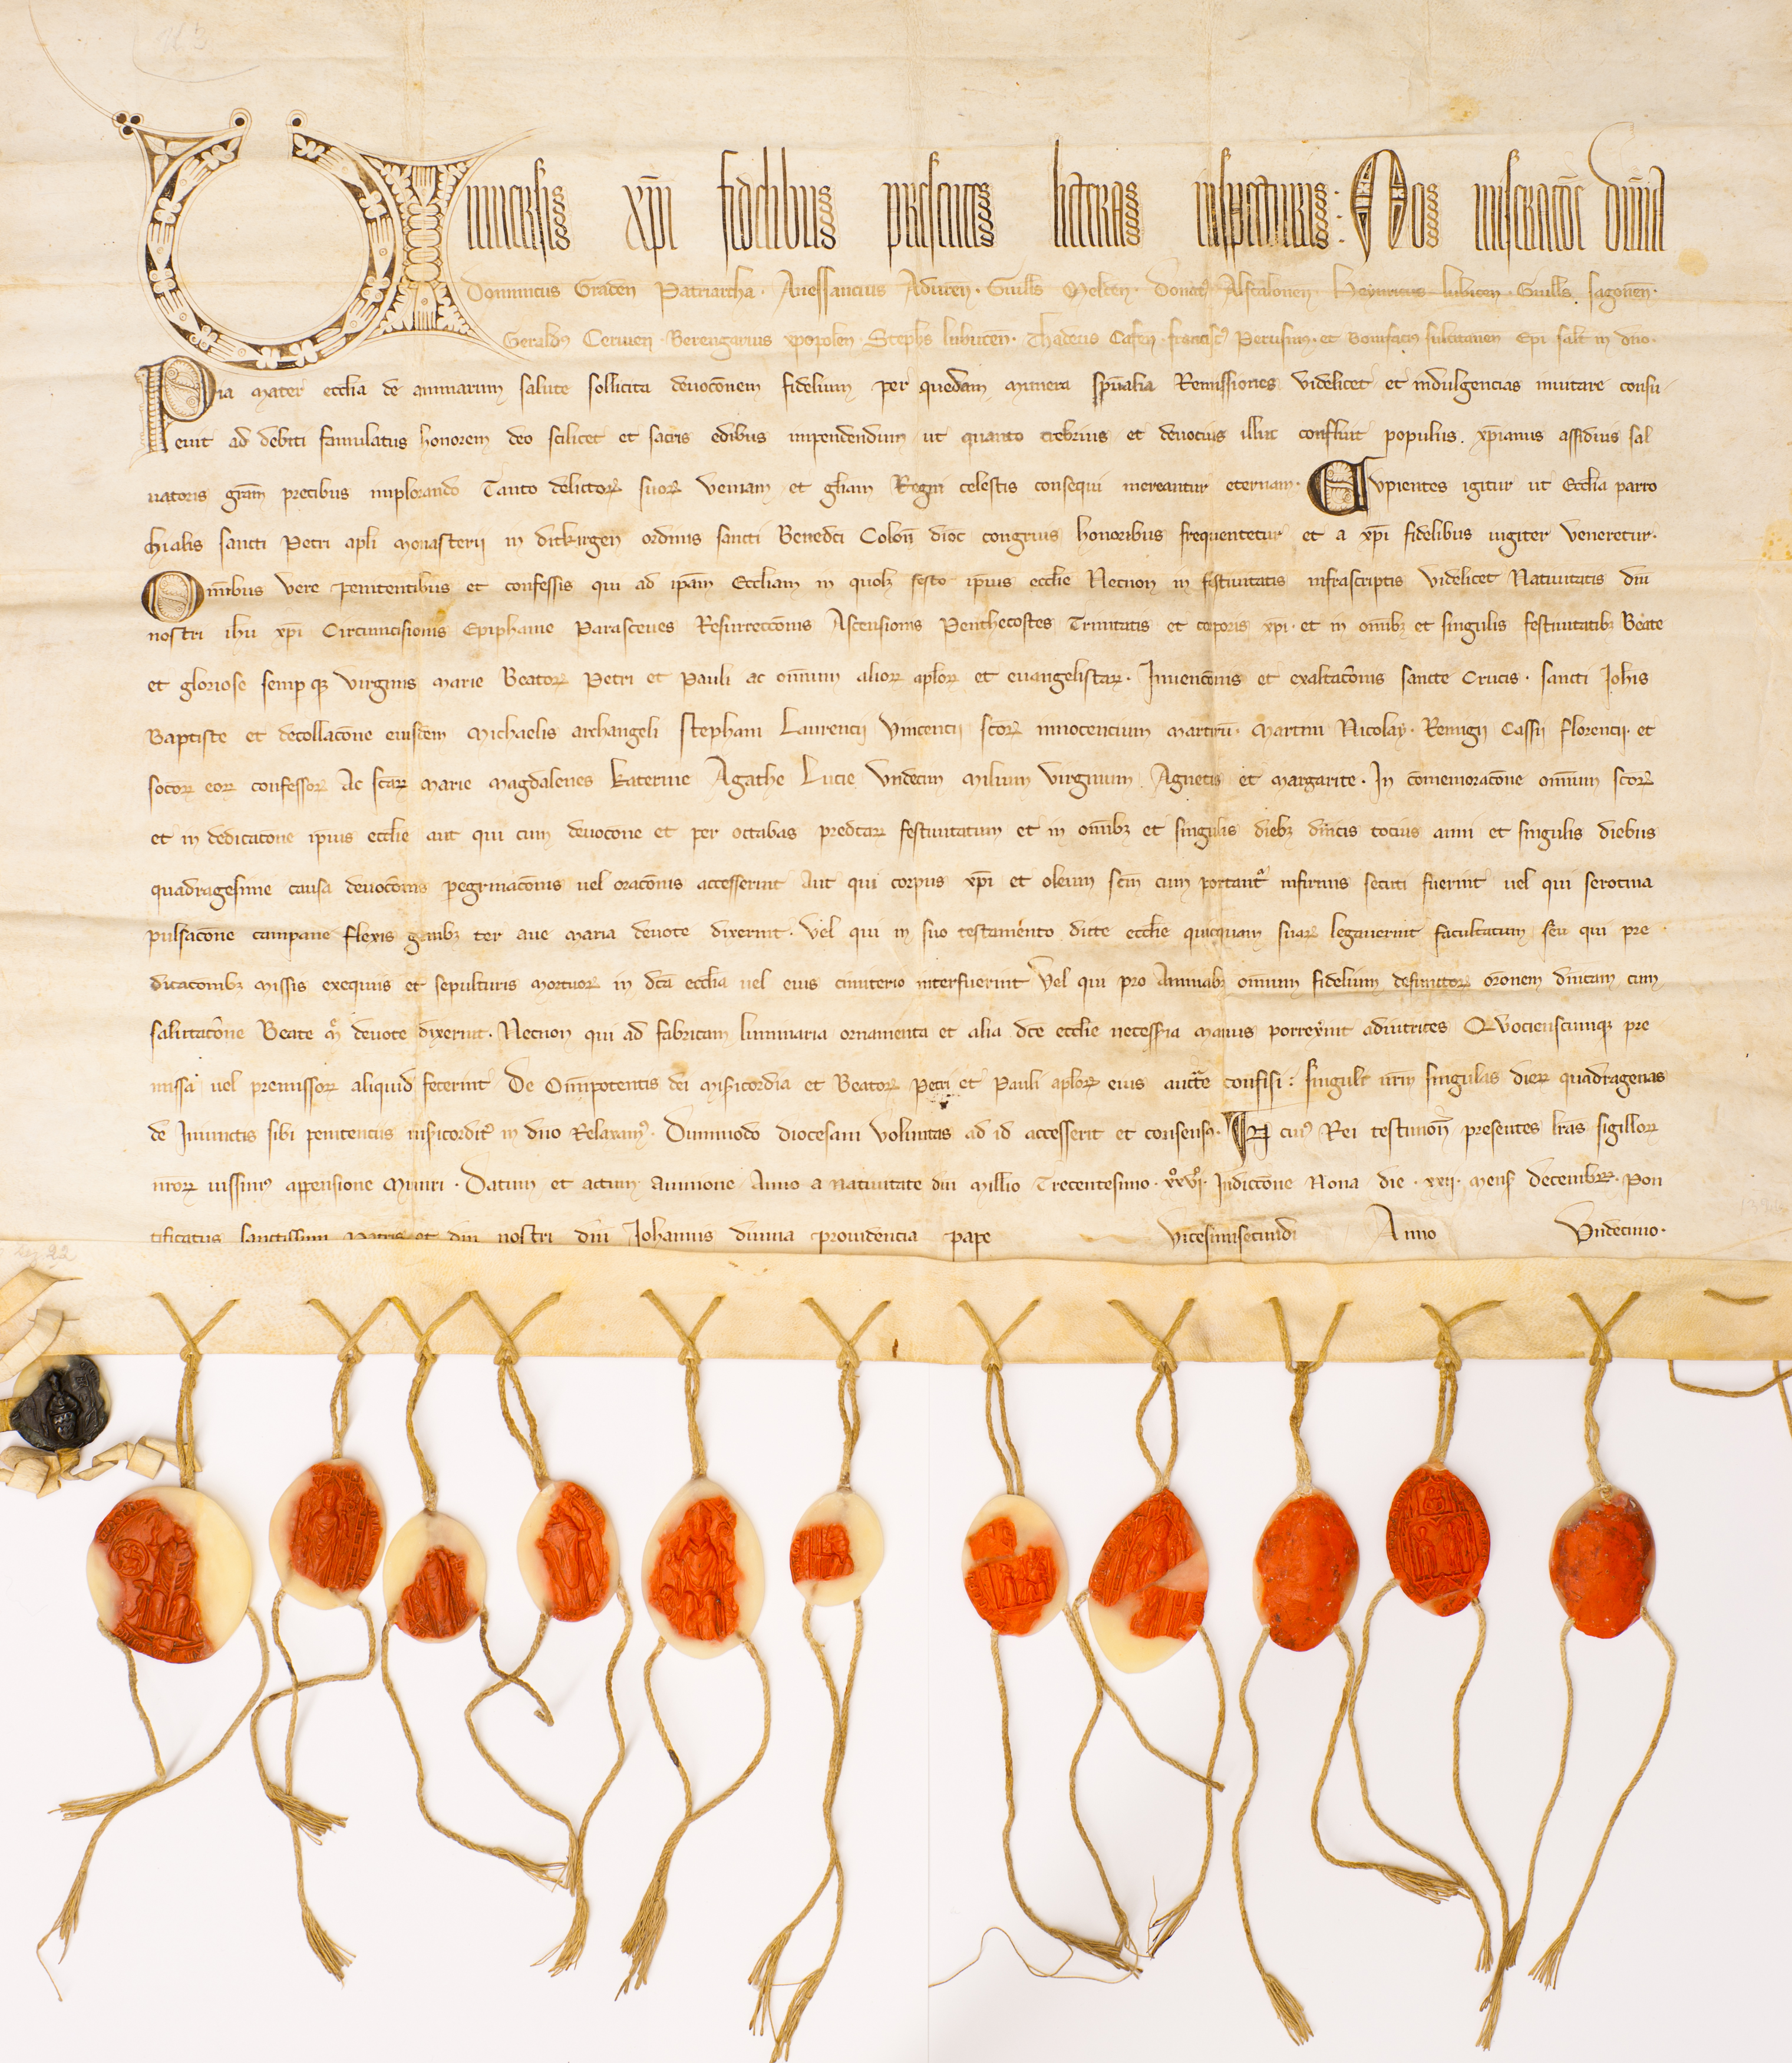 Uniuersis xp̄i fidelibus presentes litteras inspecturis: Nos miserac̄oe diuīa
Dominicus Graden̄ Patriarcha. Auessancius Aduren̄. Guills Melten̄. Donat9 Ascalonen̄. Heynricus lubicen̄. Guills sagonen̄.
Gerald9 Ceruien̄. Berengarius xpopolen̄. Steph̄s lubucen̄. Thadeus Cafen̄. francisc9 Perusin̄. et Bonifacius sulcitanen̄ Epi salt̄ in dn̄o.
Pia mater eccl̄ia de animarum salute sollicita deuoc̄onem fidelium per quedam munera spūalia Remissiones videlicet et indulgencias inuitare consu
euit ad debiti famulatus honorem deo scilicet et sacris edibus impendendum ut quanto crebrius et deuocius illuc confluit populus xp̄ianus assidius sal
uatoris grām precibus implorando Tanto delictoꝝ suoꝝ veniam et gl̄iam Regni celestis consequi mereantur eternam. Cupientes igitur ut Eccl̄ia parro
chialis sancti Petri apl̄i monasterij in ditkirgen ordinis sancti Benedc̄i Colon̄ dioc̄ congruis honoribus frequentetur et a xp̄i fidelibus iugiter veneretur.
Om̄ibus vere penitentibus et confessis qui ad ip̄am Eccl̄iam in quolꝫ festo ip̄ius eccl̄ie Necnon in festiuitatis infrascriptis videlicet Natiuitatis dn̄i
nostri ih̄u xp̄i Circumcisionis Epiphanie Parasceues Resurrecc̄onis Ascensionis Penthecostes Trinitatis et corporis xp̄i et in om̄ibꝫ et singulis festiuitatibꝫ Beate
et gloriose semp qꝫ virginis marie Beatoꝝ Petri et Pauli ac om̄ium alioꝝ apl̄oꝝ et euangelistaꝝ. Inuenc̄onis et exaltac̄onis sancte Crucis. sancti Joh̄is
Baptiste et decollac̄one eiusdem Michaelis archangeli stephani Laurencij Vincencij sc̄oꝝ innocencium martirū. Martini Nicolay. Remigij Cassij florencij. et
socoꝝ eoꝝ confessoꝝ Ac sc̄aꝝ Marie magdalenes katerine Agathe Lucie vndecim Milium virginum Agnetis et margarite. In c̄omemorac̄one om̄ium sc̄oꝝ
et in dedicac̄one ip̄ius eccl̄ie aut qui cum deuoc̄one et per octabas predc̄aꝝ festiuitatum et in om̄ibꝫ et singulis diebꝫ dn̄icis tocius anni et singulis diebus
quadragesime causa deuoc̄onis pegrinac̄onis uel orac̄onis accesserint Aut qui corpus xp̄i et oleum sc̄m cum portant᷑ infirmis secuti fuerint uel qui serotina
pulsac̄one campane flexis genibꝫ ter aue maria deuote dixerint. Vel qui in suo testamento dicte eccl̄ie quicquam suaꝝ legauerint facultatum seu qui pre
dicac̄onibꝫ missis exequiis et sepulturis Mortuoꝝ in dc̄a eccl̄ia uel eius cimiterio interfuerint Vel qui pro Animabꝫ om̄ium fidelium defunctoꝝ or̄onem dn̄icam cum
salutac̄one Beate m̄ deuote dixerint. Necnon qui ad fabricam luminaria ornamenta et alia dc̄e eccl̄ie necess̄ia manus porrexerint adiutrices Quociescumqꝫ pre
missa uel premissoꝝ aliquid fecerint De Om̄ipotentis dei mis̄icordia et Beatoꝝ Petri et Pauli apl̄oꝝ eius auctt̄e confisi: singuli nr̄m singulas dieꝝ quadragenas
de Iniunctis sibi penitenciis mis̄icordit᷑ in dn̄o Relaxam9. Dummodo diocesani voluntas ad id accesserit et consens9. In cui9 Rei testimon̄ presentes lr̄as sigilloꝝ
nr̄oꝝ iussim9 appensione Muniri. Datum et actum Auinione Anno a natiuitate dn̄i Mill̄io Trecentesimo. xxvj. Indicc̄one Nona die. xxij. mens̄ decembꝝ. Pon
tificatus sanctissimi patris et dn̄i nostri dn̄i Johannis diuina prouidencia pape vicesimisecundi Anno Vndecimo.